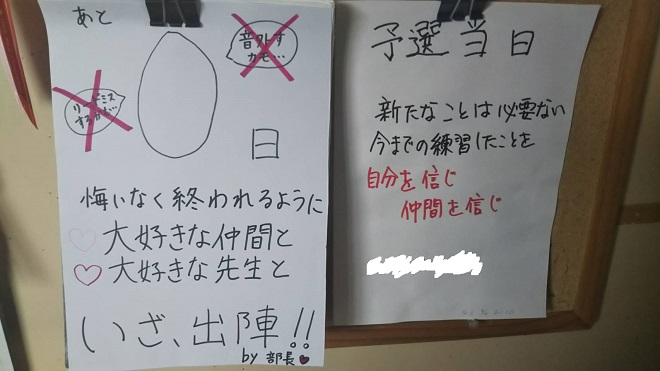 あと
0
日
音外す
カモ…
リードミス
するかも…
悔いなく終われるように
♡大好きな仲間と
♡大好きな先生と
いざ、出陣!!
by 部長♥
予選当日
新たなことは必要ない
今までの練習したことを
自分を信じ
仲間を信じ